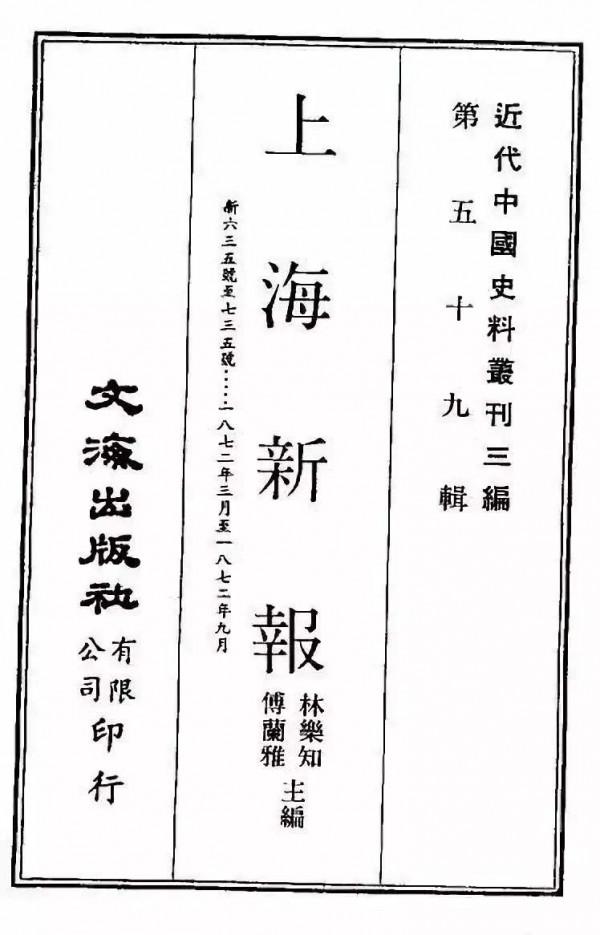 近代中國史料叢刊三編
第五十九輯
上海新報
林樂知
傅蘭雅
主編
新六三五號至七三五號……一八七二年三月至一八七二年九月
文海出版社
有限
公司
印行